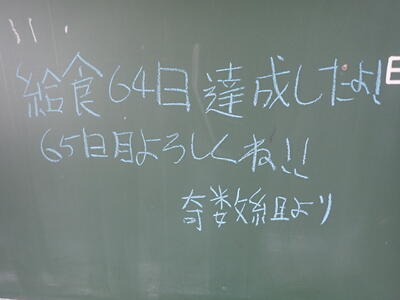 給食64日達成したよ!
65日目よろしくね!!
奇数組より